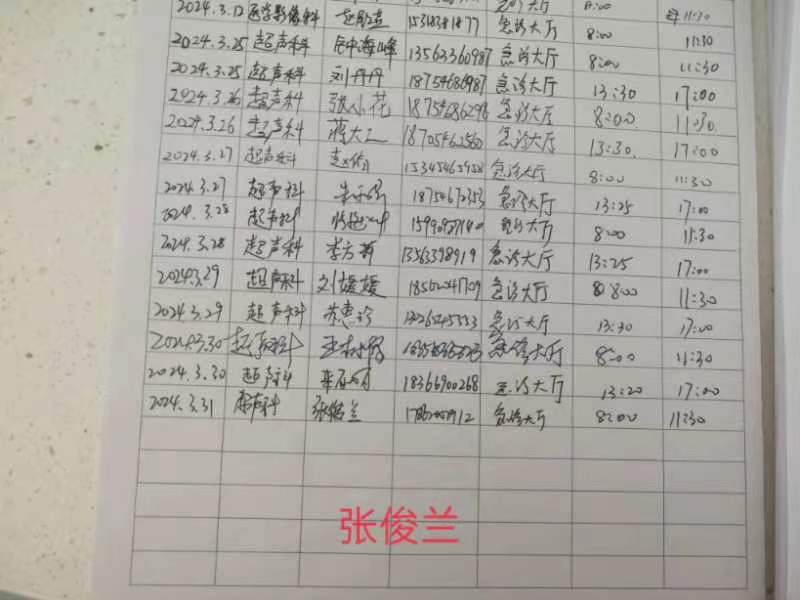 2024.3.12 医学影像科 急诊大厅 8:00 11:30
2024.3.25 超声科 钟海峰 13563360987 急诊大厅 8:00 11:30
2024.3.25 超声科 刘丹丹 18754686987 急诊大厅 13:30 17:00
2024.3.26 超声科 张小花 18754686296 急诊大厅 8:00 11:30
2024.3.26 超声科 18705462560 急诊大厅 13:30 17:00
2024.3.27 超声科 15345465958 急诊大厅 8:00 11:30
2024.3.27 超声科 18754672353 急诊大厅 13:25 17:00
2024.3.28 超声科 急诊大厅 8:00 11:30
2024.3.28 超声科 李方莉 1356398919 急诊大厅 13:25 17:00
2024.3.29 超声科 刘媛媛 急诊大厅 8:00 11:30
2024.3.29 超声科 苏惠珍 急诊大厅 13:30 17:00
2024.3.30 超声科 急诊大厅 8:00 11:30
2024.3.30 超声科 18366900268 急诊大厅 13:20 17:00
2024.3.31 超声科 张俊兰 急诊大厅 8:00 11:30
张俊兰